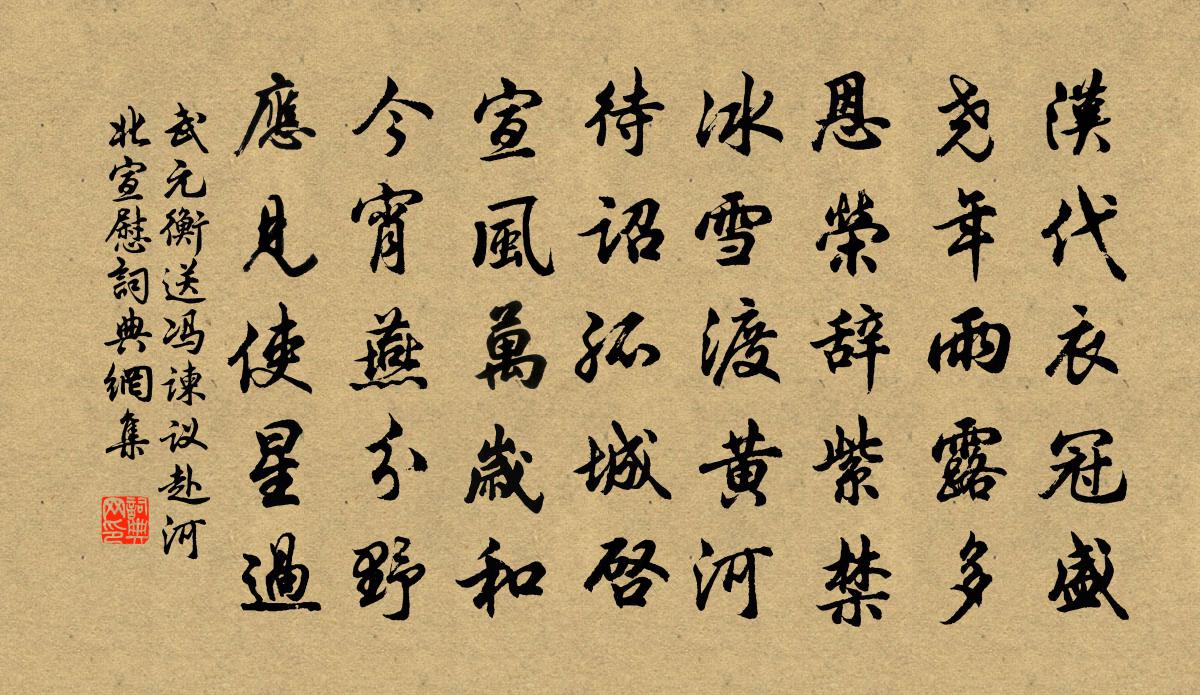 漢代衣冠盛
尧年雨露多
恩榮辞紫禁
冰雪渡黄河
待詔孤城啓
宣風萬歲和
今宵燕分野
應見使星過
武元衡送冯諫议赴河
北宣慰詞典網集
詞典
网印